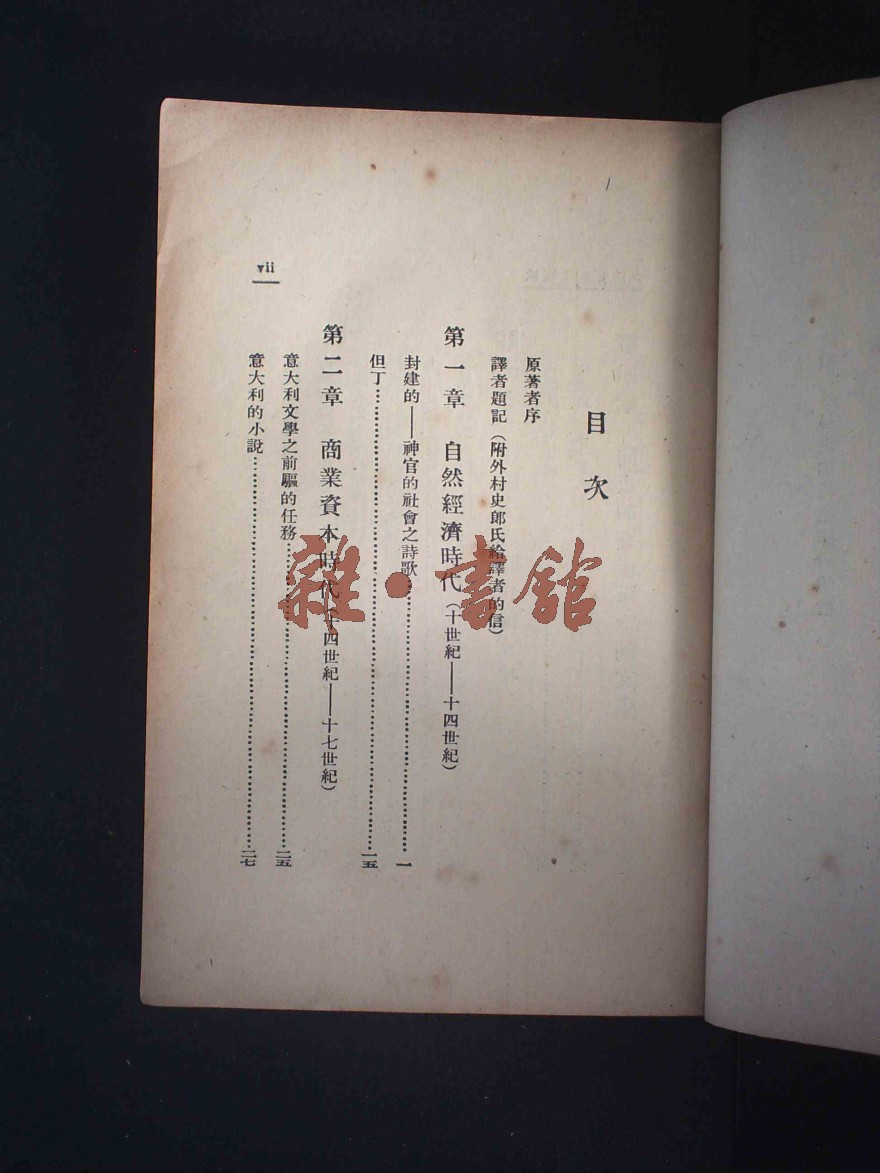 目次
原著者序
譯者題記（附外村史郎氏給譯者的信）
第一章　自然經濟時代（十世紀——十四世紀）
封建的——神官的社會之詩歌……一
但丁……一五
第二章　商業資本時代（十四世紀——十七世紀）
意大利文學之前驅的任務……二五
意大利的小說……二七
vii
雜·書館